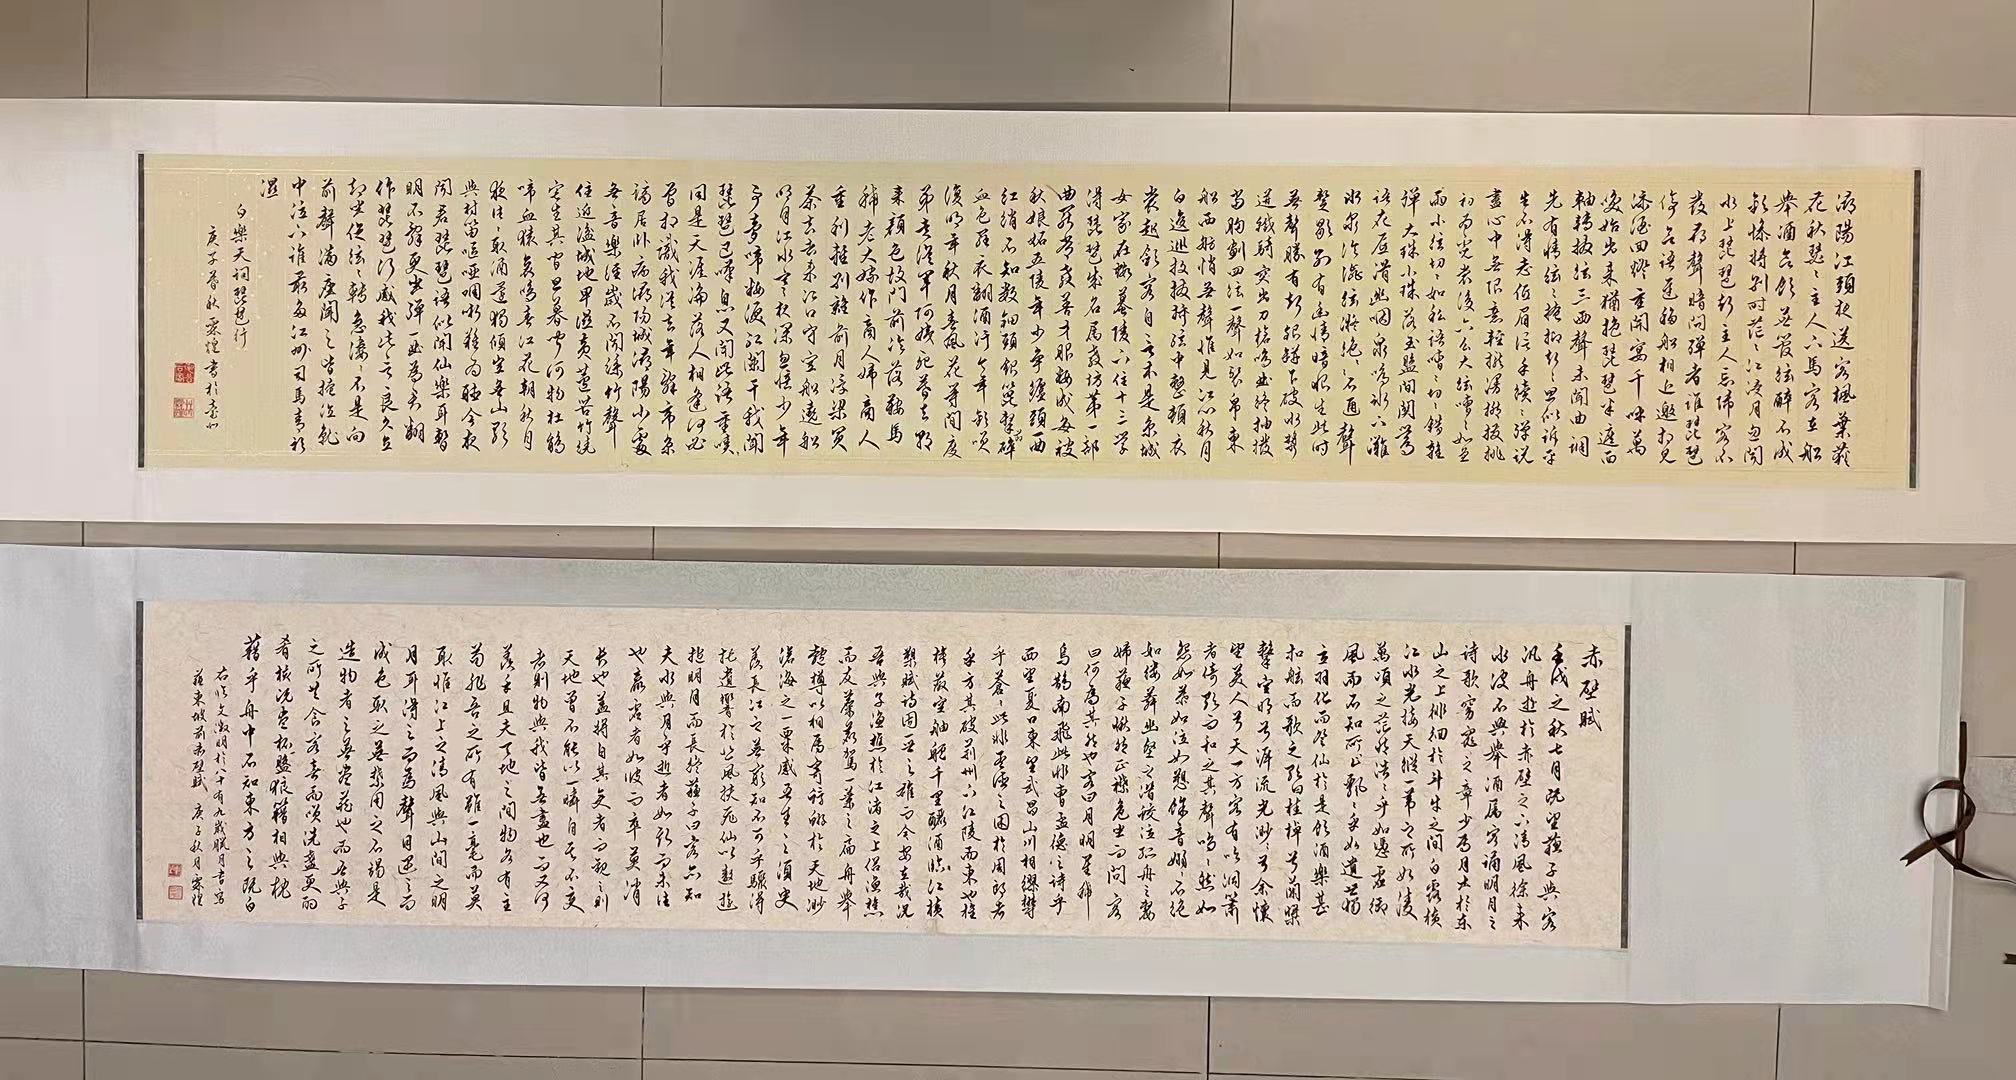 潯陽江頭夜送客楓葉荻
花秋瑟々主人下馬客在船
舉酒欲飲無管絃醉不成
歡慘將別時茫々江浸月忽聞
水上琵琶聲主人忘歸客不
發尋聲暗問彈者誰琵琶
停欲語遲移船相近邀相見
添酒回燈重開宴千呼萬
喚始出來猶抱琵琶半遮面
軸轉撥絃三兩聲未聞曲調
先有情絃々掩抑聲々思似訴平
生不得志低眉信手續々彈說
盡心中無限意輕攏漫撚撥挑
初為霓裳後六幺大絃嘈々如急
雨小絃切々如私語嘈々切々錯雜
彈大珠小珠落玉盤間關鶯
語花底滑幽咽泉流冰下灘
水泉冷澀絃凝絕々不通聲
暫歇別有幽情暗恨生此時
無聲勝有聲銀瓶乍破水漿
迸鐵騎突出刀槍鳴曲終抽撥
當胸劃四絃一聲如裂帛東
船西舫悄無聲惟見江心秋月
白沈吟放撥插絃中整頓衣
裳起斂容自言本是京城
女家在蝦蟇陵下住十三學
得琵琶成名屬教坊第一部
曲罷常教善才服粧成每被
秋娘妬五陵年少爭纏頭一曲
紅綃不知數鈿頭銀篦擊節碎
血色羅衣翻酒汙今年歡笑
復明年秋月春風花等閒度
弟走從軍阿姨死暮去朝
來顏色故門前冷落鞍馬
稀老大嫁作商人婦商人
重利輕別離前月浮梁買
茶去去來江口守空船遶船
明月江水寒夜深忽憶少年
事夢啼粧淚紅闌干我聞
琵琶已嘆息又聞此語重唧々
同是天涯淪落人相逢何必
曾相識我從去年辭帝京
謫居卧病潯陽城潯陽小處
無音樂終歲不聞絲竹聲
住近湓城地卑溼黃蘆苦竹繞
宅生其間旦暮聞何物杜鵑
啼血猿哀鳴春江花朝秋月
夜往々取酒還獨傾豈無山歌
與村笛嘔啞嘲哳難為聽今夜
聞君琵琶語似聞仙樂耳暫
明不辭更坐彈一曲為君翻
作琵琶行感我此言良久立
却坐促絃々轉急凄々不是向
前聲滿座聞之皆掩泣就
中泣下誰最多江州司馬青衫
溼
白樂天詞琵琶行
庚子暮秋霖煌書於泰州
赤壁賦
壬戌之秋七月既望蘇子與客
汎舟遊於赤壁之下清風徐來
水波不興舉酒屬客誦明月之
詩歌窈窕之章少焉月出於東
山之上徘徊於斗牛之間白露橫
江水光接天縱一葦之所如凌
萬頃之茫然浩々乎如憑虛御
風而不知所止飄々乎如遺世獨
立羽化而登仙於是飲酒樂甚
扣舷而歌之歌曰桂棹兮蘭槳
擊空明兮泝流光渺々兮余懷
望美人兮天一方客有吹洞簫
者倚歌而和之其聲嗚々然如
怨如慕如泣如愬餘音嫋々不絕
如縷舞幽壑之潛蛟泣孤舟之嫠
婦蘇子愀然正襟危坐而問客
曰何為其然也客曰月明星稀
烏鵲南飛此非曹孟德之詩乎
西望夏口東望武昌山川相繆鬱
乎蒼々此非孟德之困於周郎者
乎方其破荊州下江陵而東也舳
艫千里旌旗蔽空釃酒臨江橫
槊賦詩固一世之雄而今安在哉況
吾與子漁樵於江渚之上侶魚鰕
而友麋鹿駕一葉之扁舟舉
匏樽以相屬寄蜉蝣於天地渺
滄海之一粟哀吾生之須臾
羨長江之無窮知不可乎驟得
託遺響於悲風挾飛仙以遨遊
抱明月而長終蘇子曰客亦知
夫水與月乎逝者如斯而未往
也盈虛者如彼而卒莫消
長也蓋將自其變者而觀之則
天地曾不能以一瞬自其不變
者則物與我皆無盡也而又何
羨乎且夫天地之間物各有主
苟非吾之所有雖一毫而莫
取惟江上之清風與山間之明
月耳得之而為聲目遇之而
成色取之無禁用之不竭是
造物者之無盡藏也而吾與子
之所共食客喜而笑洗盞更酌
肴核既盡杯盤狼籍相與枕
藉乎舟中不知東方之既白
右臨文徵明八十有九歲臘月書寫
蘇東坡前赤壁賦 庚子秋月霖煌